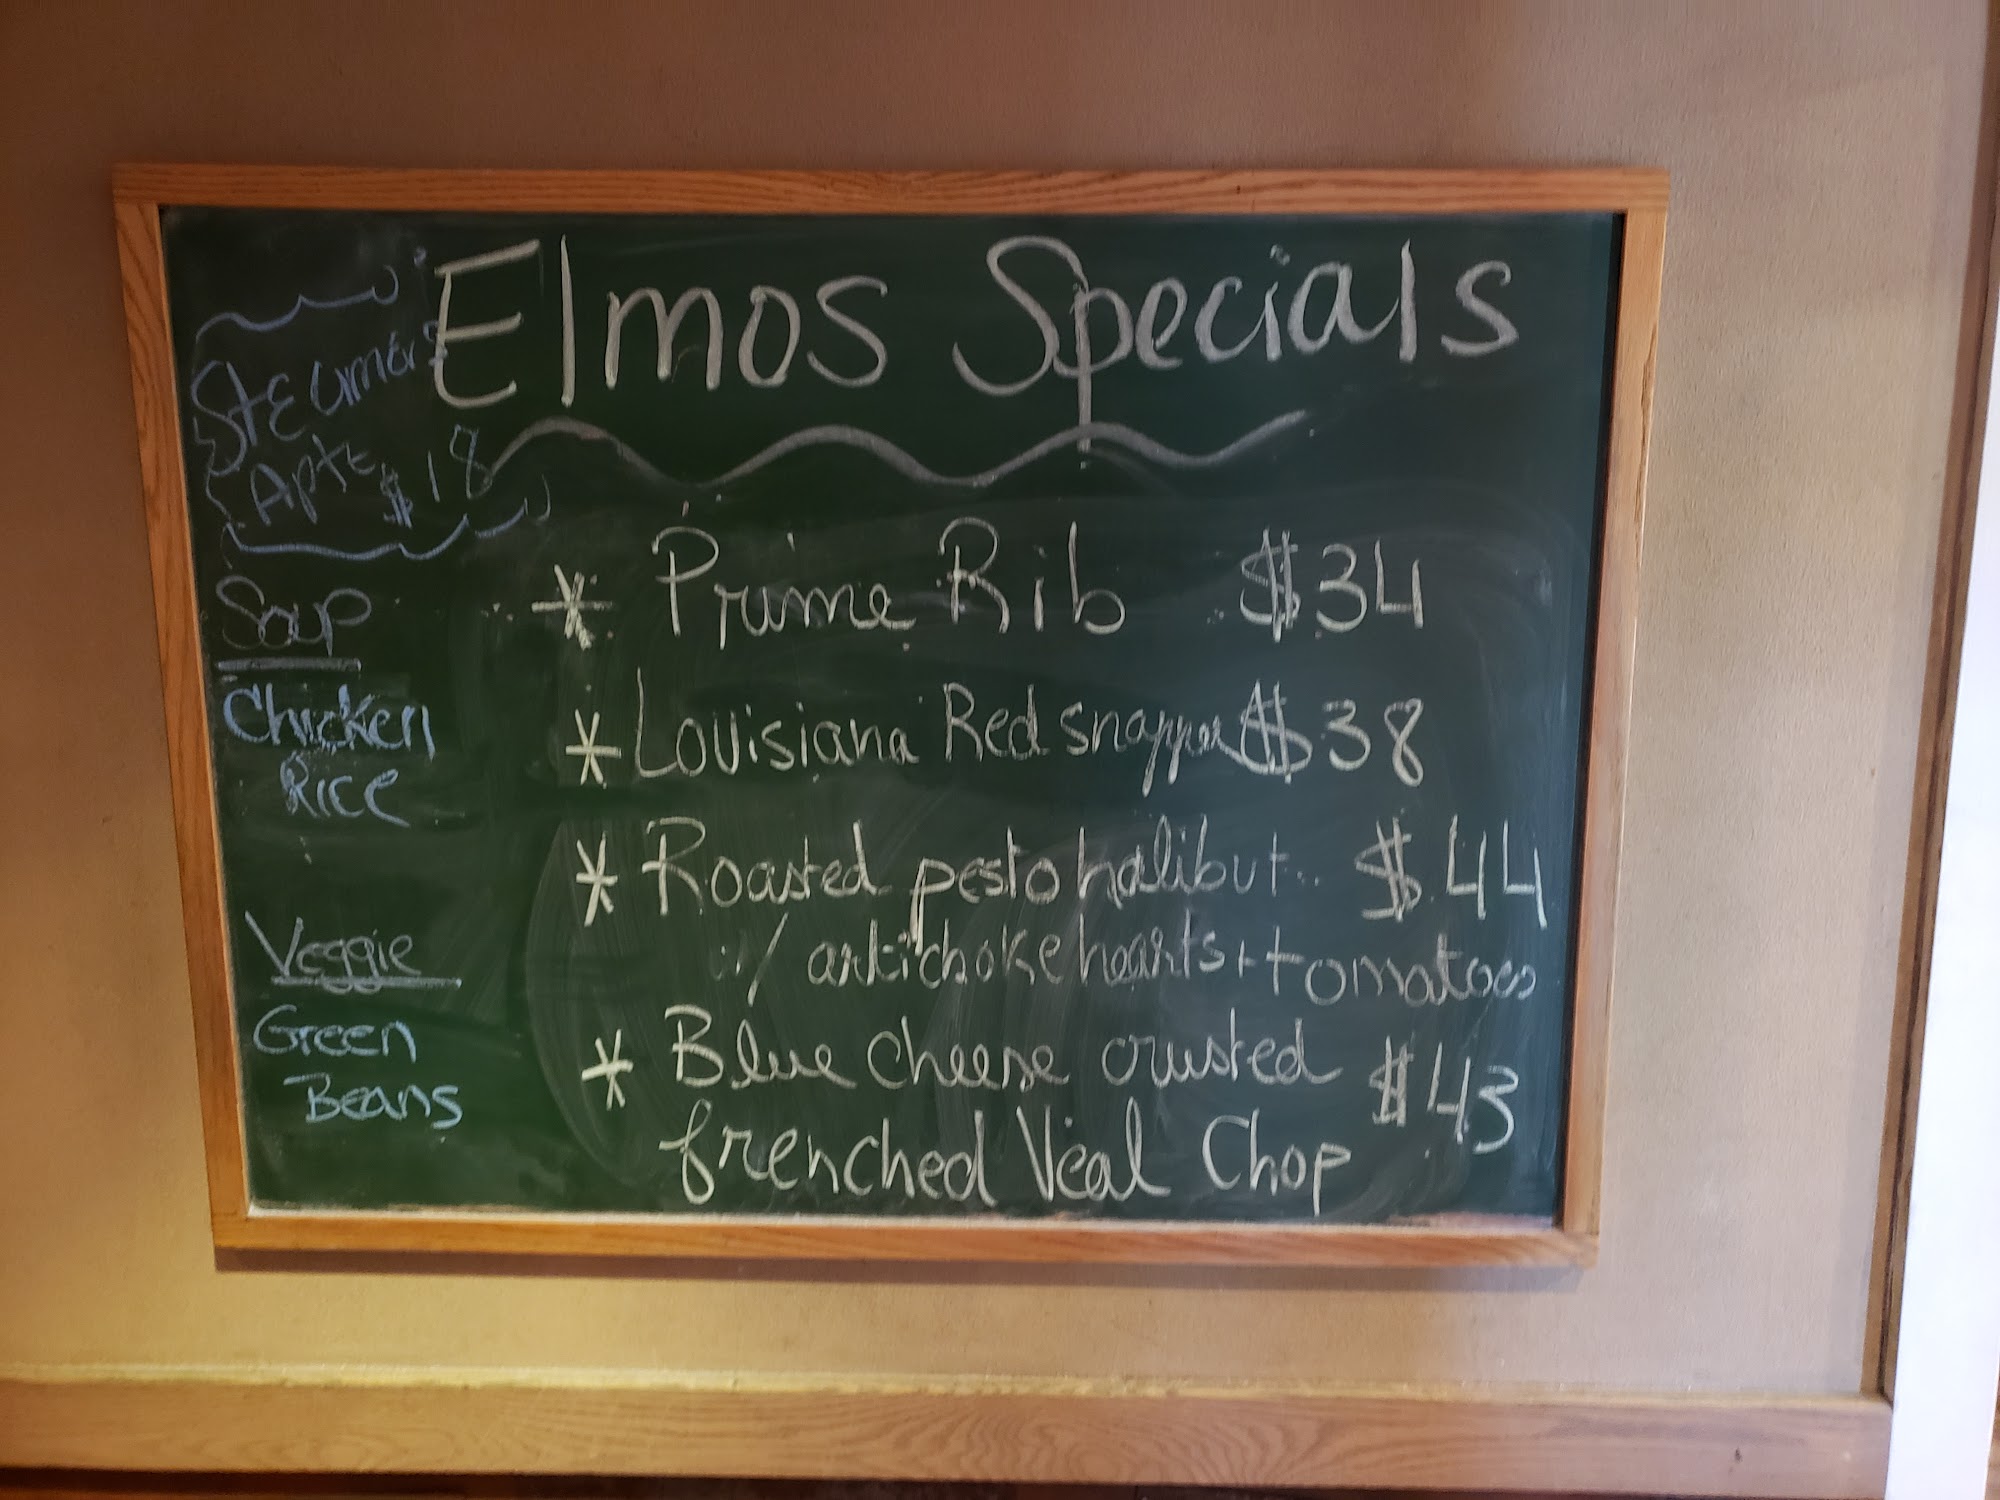 Elmos Specials
Steamers
Apte $18
Soup
Chicken
Rice
Veggie
Green
Beans
* Prime Rib $34
* Louisiana Red snapper $38
* Roasted pesto halibut $44
w/ artichoke hearts + tomatoes
* Blue cheese crusted $43
frenched Veal Chop